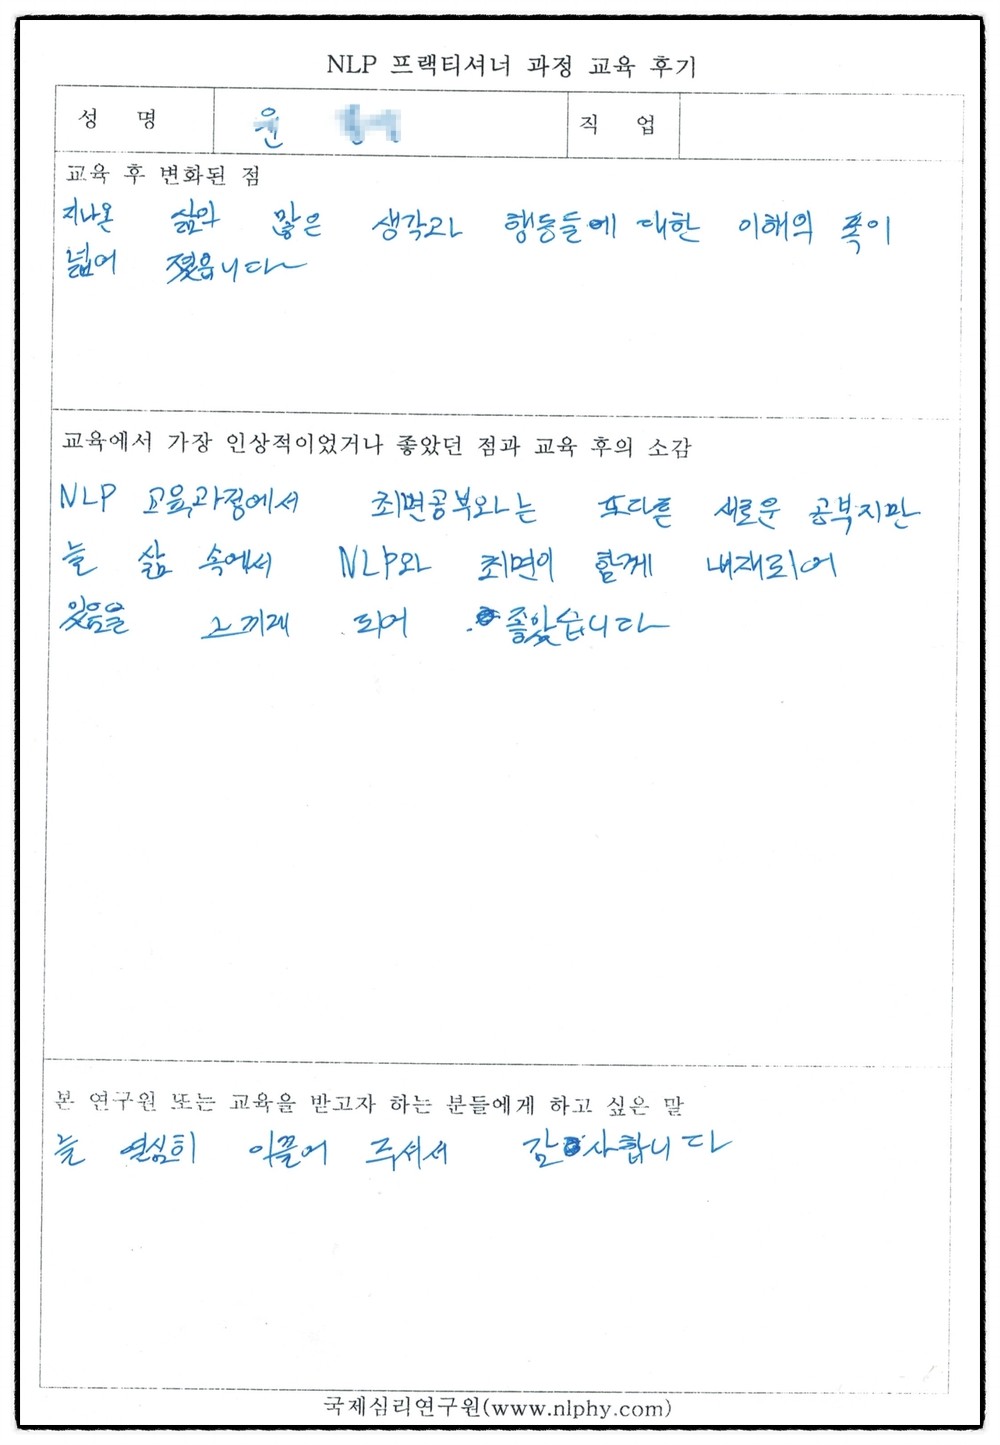 NLP 프랙티셔너 과정 교육 후기
성 명 윤 직 업
교육 후 변화된 점
지나온 삶의 많은 생각과 행동들에 대한 이해의 폭이
넓어 졌읍니다
교육에서 가장 인상적이었거나 좋았던 점과 교육 후의 소감
NLP 교육과정에서 최면공부와는 또다른 새로운 공부지만
늘 삶 속에서 NLP와 최면이 함께 내재되어
있음을 느끼게 되어 좋았습니다
본 연구원 또는 교육을 받고자 하는 분들에게 하고 싶은 말
늘 열심히 이끌어 주셔서 감사합니다
국제심리연구원(www.nlphy.com)